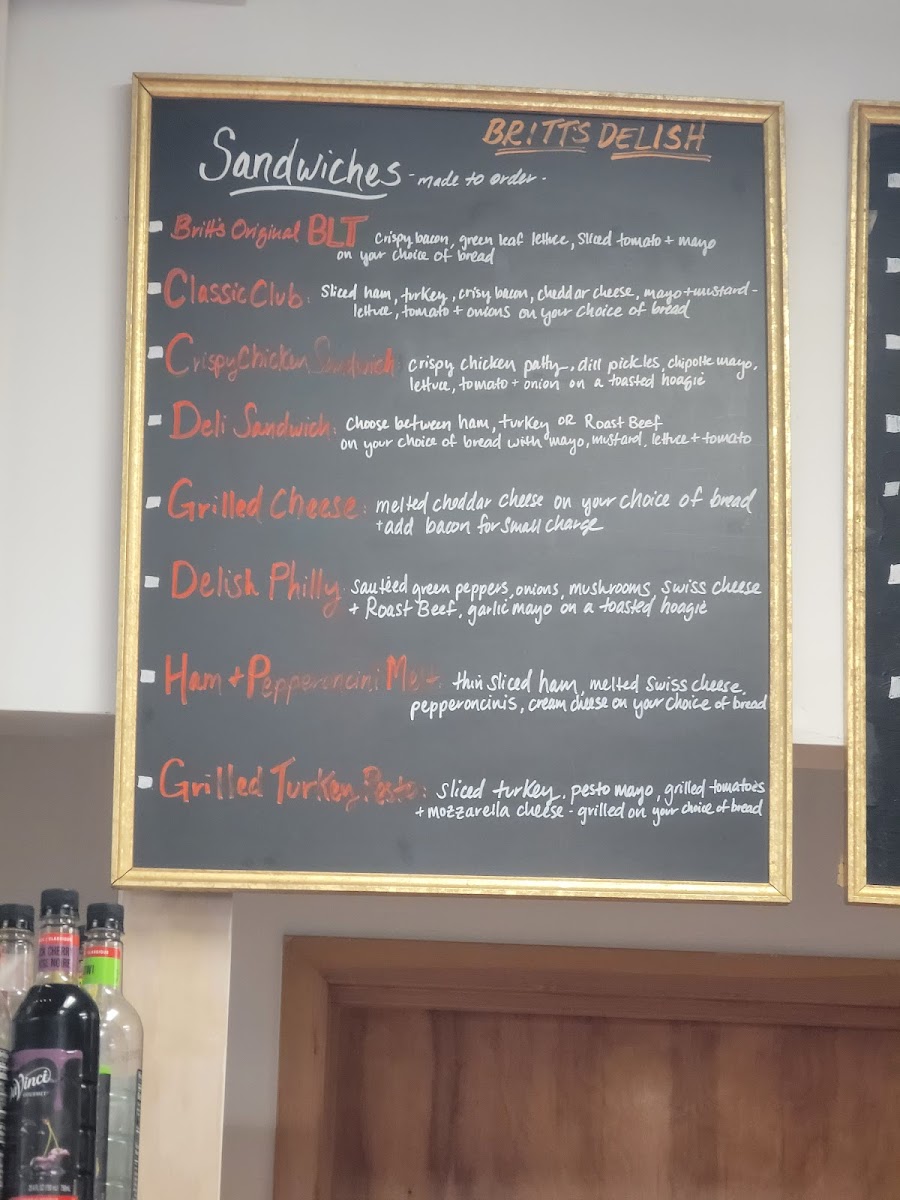 BRITTS DELISH
Sandwiches - made to order -
Britt's Original BLT crispy bacon, green leaf lettuce, sliced tomato + mayo
on your choice of bread
Classic Club: sliced ham, turkey, crisy bacon, cheddar cheese, mayo + mustard -
lettuce, tomato + onions on your choice of bread
Crispy Chicken Sandwich crispy chicken patty, dill pickles, chipotle mayo,
lettuce, tomato + onion on a toasted hoagie
Deli Sandwich: choose between ham, turkey OR Roast Beef
on your choice of bread with mayo, mustard, lettuce + tomato
Grilled Cheese: melted cheddar cheese on your choice of bread
+ add bacon for small charge
Delish Philly: sautéed green peppers, onions, mushrooms, swiss cheese
+ Roast Beef, garlic mayo on a toasted hoagie
Ham + Pepperoncini Melt: thin sliced ham, melted swiss cheese,
pepperoncinis, cream cheese on your choice of bread
Grilled Turkey Pesto: sliced turkey, pesto mayo, grilled tomatoes
+ mozzarella cheese - grilled on your choice of bread
CHERRY
Vinci
GOURMET